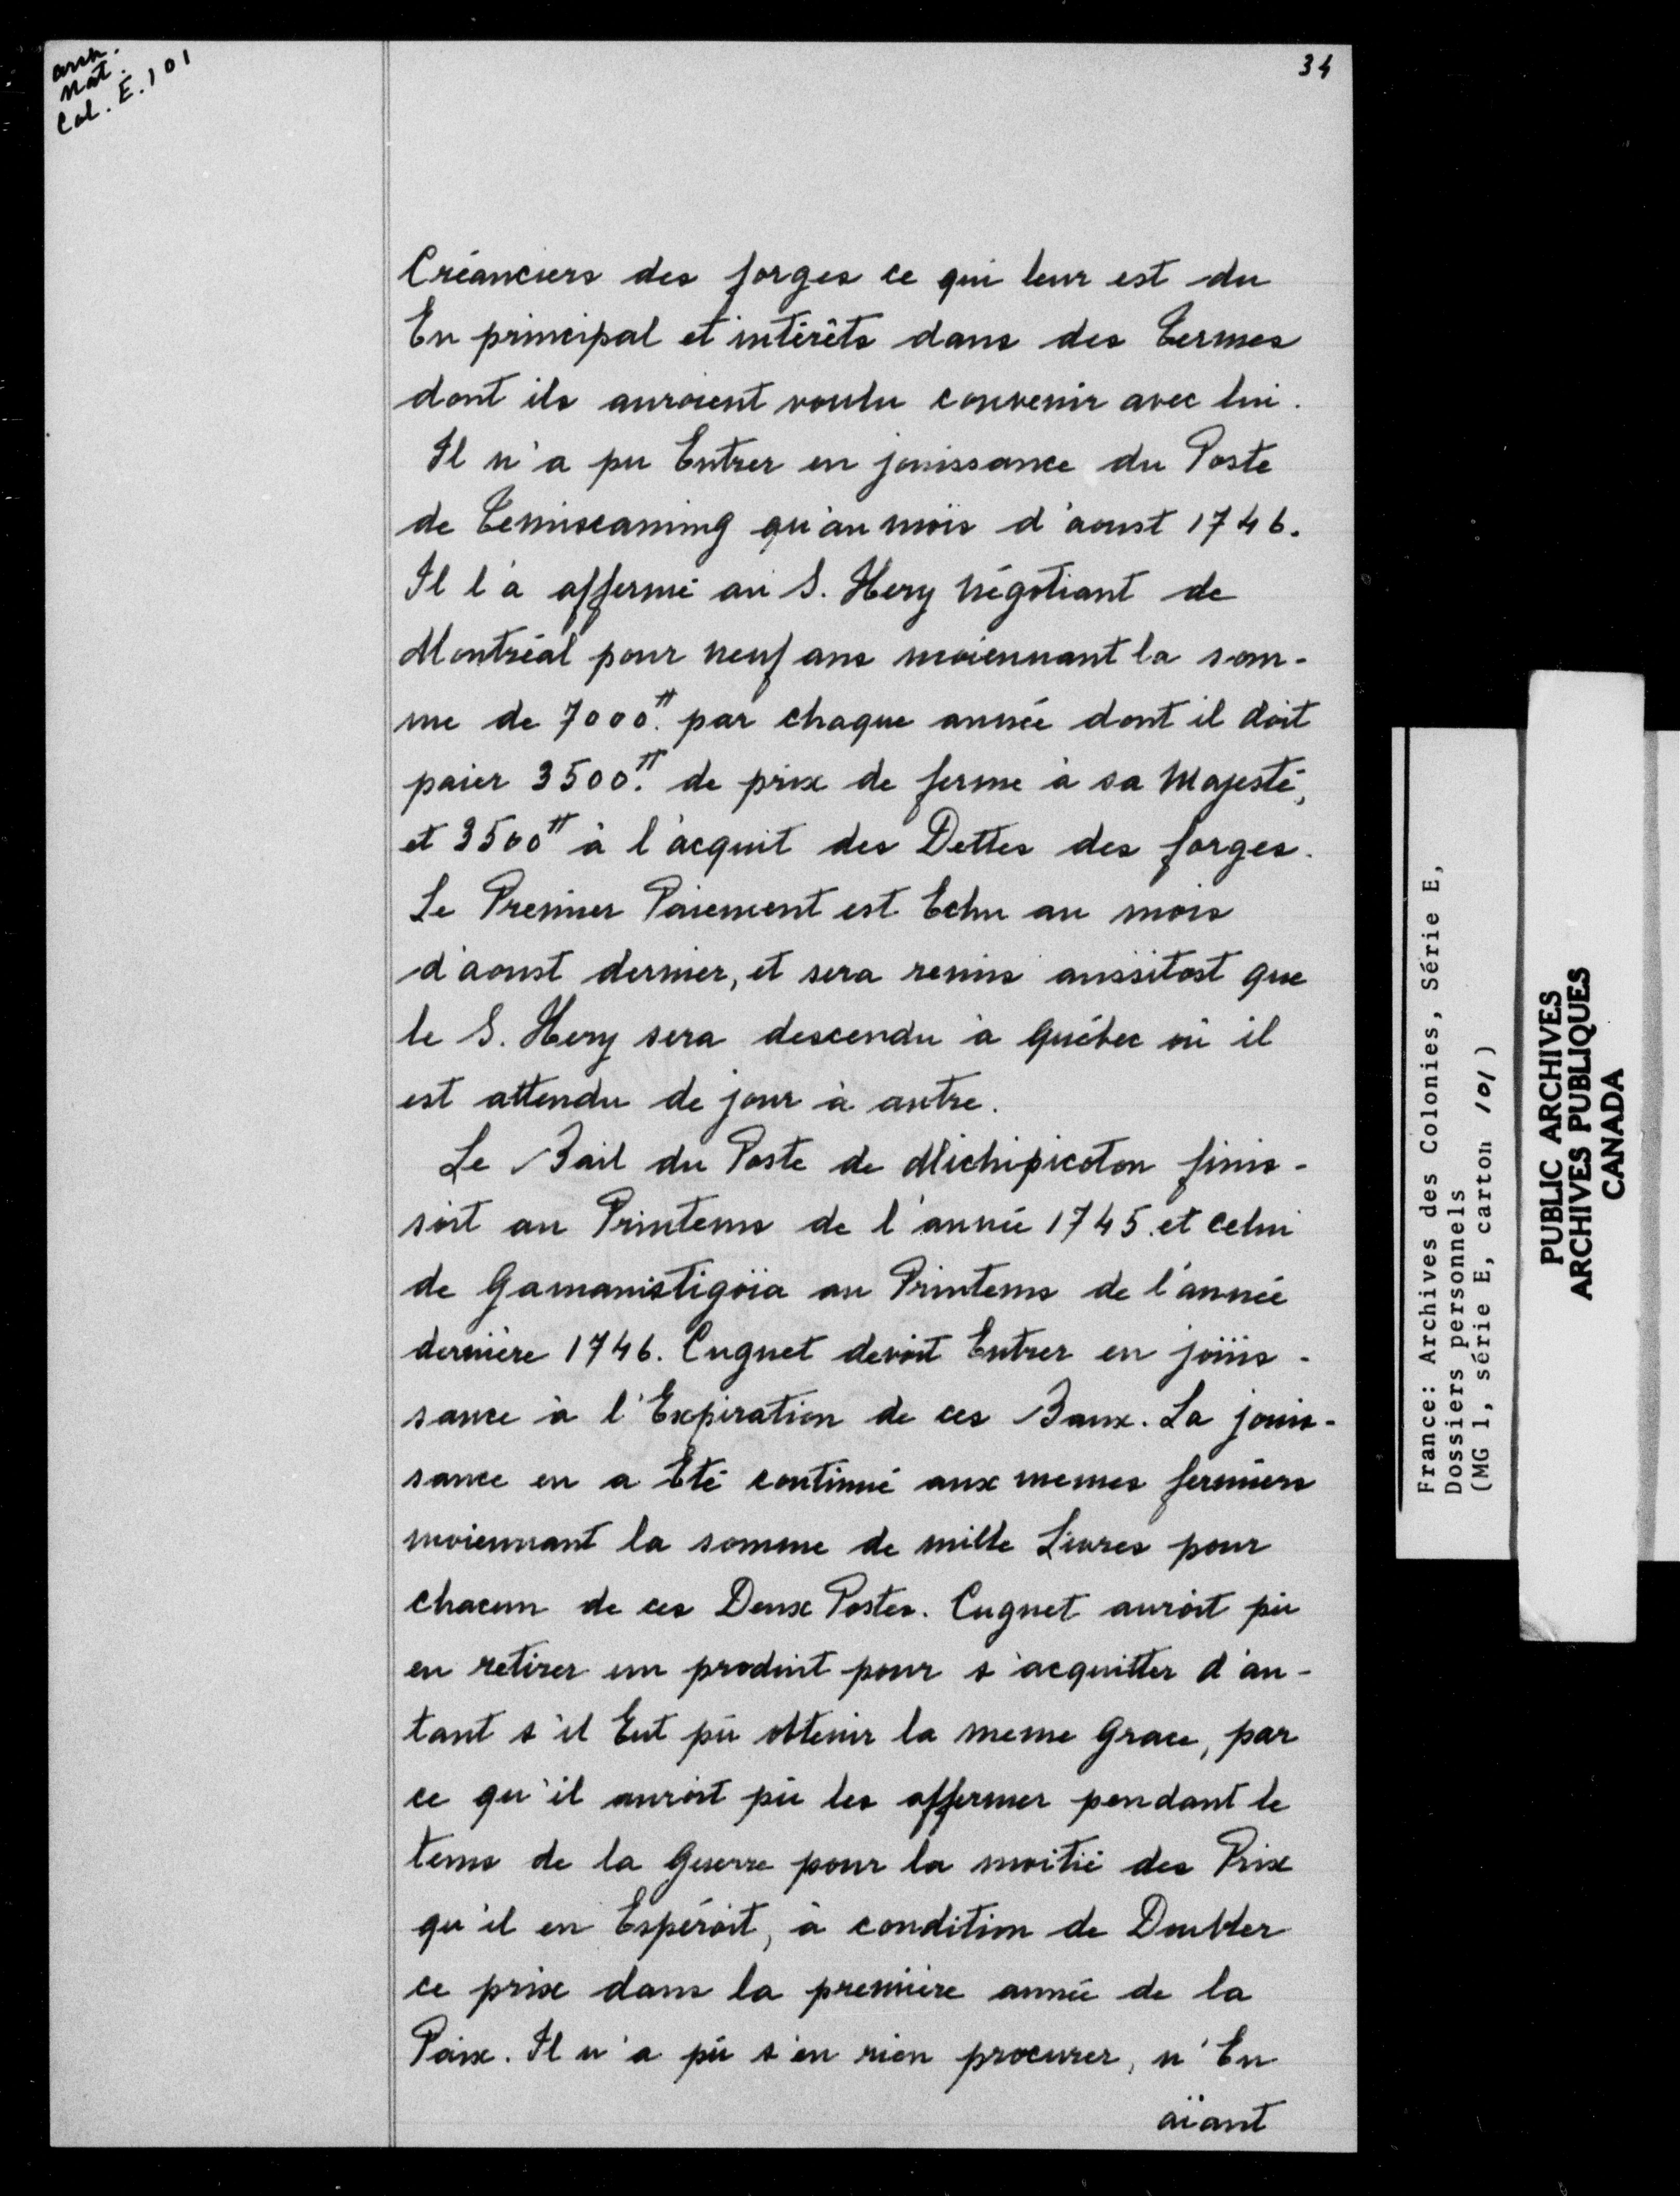 arch.
nat.
Col. E. 101
34
Créanciers des forges ce qui leur est du
En principal et intérêts dans des termes
dont ils auroient voulu convenir avec lui.
Il n'a pu Entrer en jouissance du Poste
de Temiscaming qu'au mois d'aoust 1746.
Il l'a affermé au S. Hery Négotiant de
Montréal pour neuf ans moiennant la som-
me de 7000.# par chaque année dont il doit
paier 3500.# de prix de ferme à sa Majesté,
et 3500# à l'acquit des Dettes des forges.
Le Premier Paiement est Echu au mois
d'aoust dernier, et sera remis aussitost que
le S. Hery sera descendu à Québec où il
est attendu de jour à autre.
Le Bail du Poste de Michipicoton finis-
soit au Printems de l'année 1745. et celui
de Gamanistigoïa au Printems de l'année
dernière 1746. Cugnet devoit Entrer en joüis-
sance à l'Expiration de ces Baux. La jouis-
sance en a Eté continué aux memes fermiers
moiennant la somme de mille Livres pour
chacun de ces Deux Postes. Cugnet auroit pû
en retirer un produit pour s'acquitter d'au-
tant s'il Eut pû obtenir la meme Grace, par
ce qu'il auroit pû les affermer pendant le
tems de la Guerre pour la moitié des Prix
qu'il en Espéroit, à condition de Doubler
ce prix dans la première année de la
Paix. Il n'a pû s'en rien procurer, n'En
aïant
France: Archives des Colonies, Série E,
Dossiers personnels
(MG 1, série E, carton 101)
PUBLIC ARCHIVES
ARCHIVES PUBLIQUES
CANADA